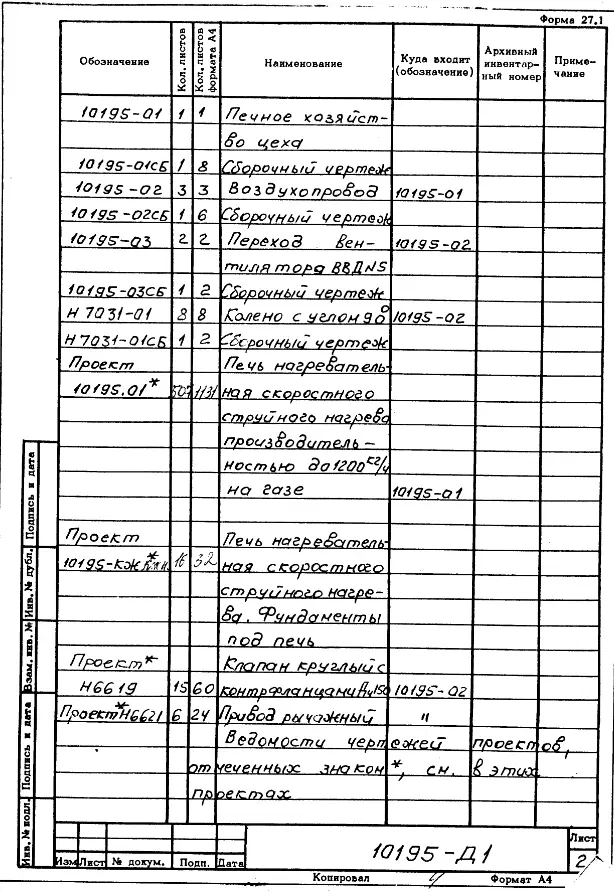 Форма 27.1
Обозначение | Кол. листов | Кол. листов формата А4 | Наименование | Куда входит (обозначение) | Архивный инвентар-ный номер | Приме-чание
10195-01 1 1 Печное хозяйст-
во цеха
10195-01СБ 1 8 Сборочный чертеж
10195-02 3 3 Воздухопровод 10195-01
10195-02СБ 1 6 Сборочный чертеж
10195-03 2 2 Переход вен- 10195-02
тилятора ВВД№5
10195-03СБ 1 2 Сборочный чертеж
Н7031-01 8 8 Колено с углом 90° 10195-02
Н7031-01СБ 1 2 Сборочный чертеж
Проект Печь нагреватель-
10195.01* 507 1131 ная скоростного
струйного нагрева
производитель-
ностью до 1200 кг/ч
на газе 10195-01
Проект Печь нагреватель-
10195-КЖ* 16 32 ная скоростного
струйного нагре-
ва. Фундаменты
под печь
Проект* Клапан круглый с
Н6619 15 60 контрфланцами Ду150 10195-02
Проект*Н6621 6 24 Привод рычажный "
Ведомости чертежей проектов,
отмеченных знаком *, см. в этих
проектах
Инв. № подл. Подпись и дата Взам. инв. № Инв. № дубл. Подпись и дата
10195-Д1
Лист
2
Изм Лист № докум. Подп. Дата
Копировал Формат А4